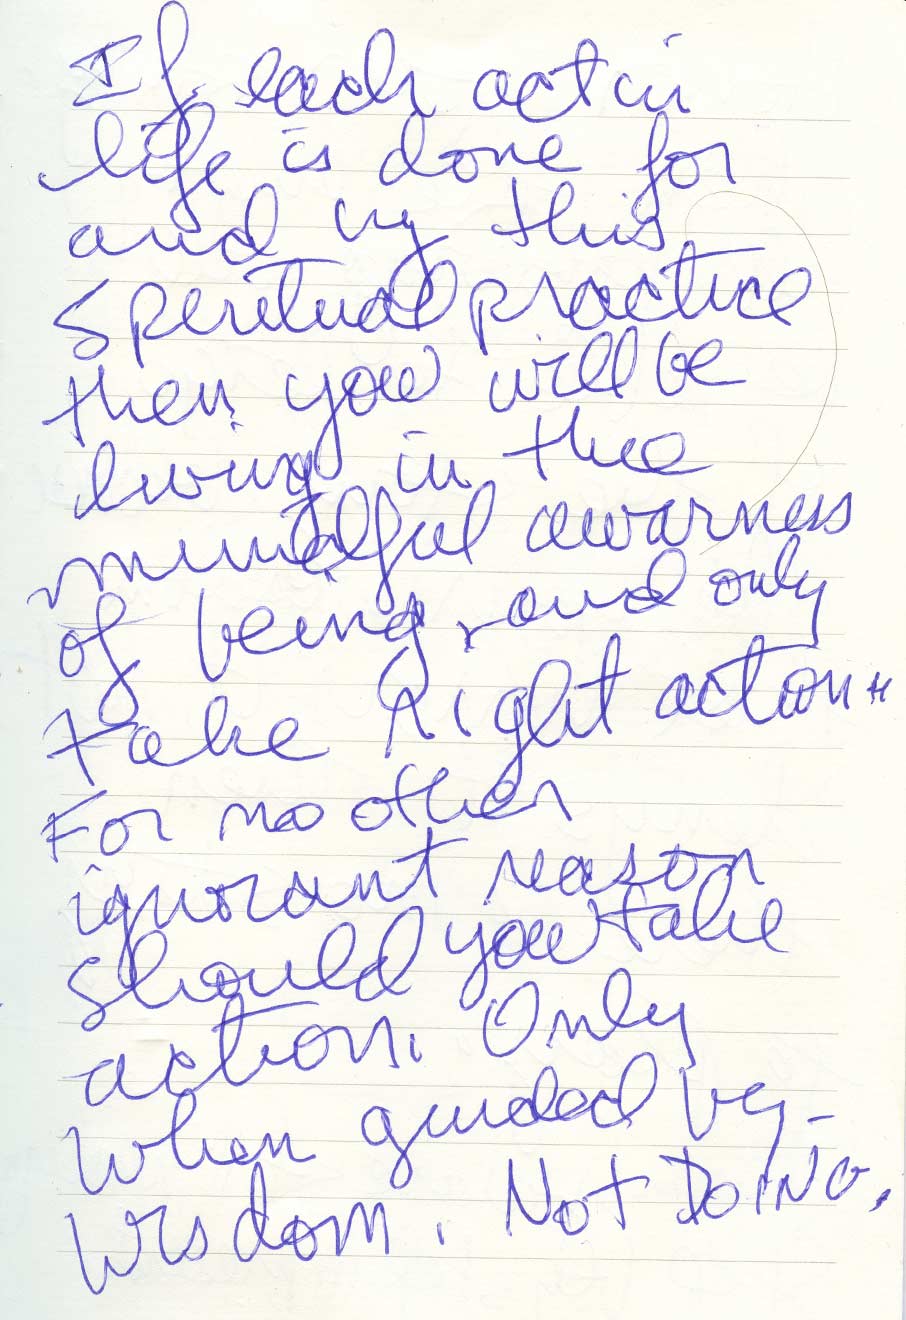 If each act in
life is done for
and by this
Speritual practice
then you will be
living in the
mindful awarness
of being, and only
take Right action
For no other
ignorant reason
should you take
action. Only
when guided by -
Wisdom. NOT DOING.